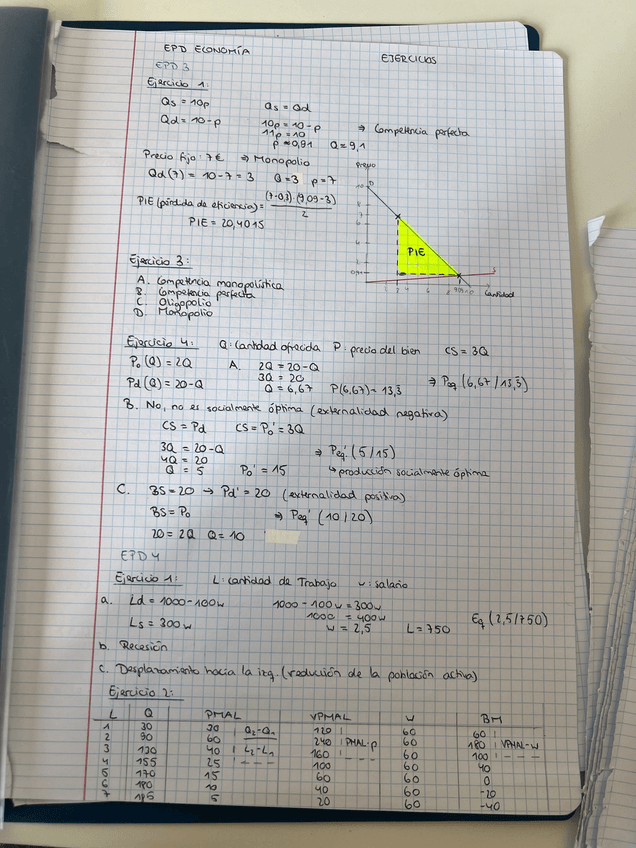 EPD ECONOMÍA
EJERCICIOS
EPD 3
Ejercicio 1:
Qs = 10p Qs = Qd
Qd = 10-p 10p = 10-p ⇒ Competencia perfecta
11p = 10
p ≈ 0,91 Q = 9,1
Precio fijo: 7€ ⇒ Monopolio
Qd (7) = 10-7 = 3 Q = 3 p = 7
PIE (pérdida de eficiencia) = (7-0,3)·(9,09-3) / 2
PIE = 20,4015
Precio
PIE
Cantidad
Ejercicio 3:
A. Competencia monopolística
B. Competencia perfecta
C. Oligopolio
D. Monopolio
Ejercicio 4: Q: Cantidad ofrecida P: precio del bien CS = 3Q
Po (Q) = 2Q A. 2Q = 20-Q
3Q = 20
Pd (Q) = 20-Q Q = 6,67 P(6,67) = 13,3 ⇒ Peq (6,67/13,3)
B. No, no es socialmente óptima (externalidad negativa)
CS = Pd CS = Po' = 3Q
3Q = 20-Q ⇒ Peq' (5/15)
4Q = 20
Q = 5 Po' = 15 ↳ producción socialmente óptima
C. BS = 20 → Pd' = 20 (externalidad positiva)
BS = Po ⇒ Peq' (10/20)
20 = 2Q Q = 10
EPD 4
Ejercicio 1: L: cantidad de Trabajo w: salario
a. Ld = 1000-100w 1000-100w = 300w
1000 = 400w
Ls = 300w w = 2,5 L = 750 Eq (2,5/750)
b. Recesión
c. Desplazamiento hacia la izq. (reducción de la población activa)
Ejercicio 2:
L Q PMAL VPMAL w BM
1 30 30 Q2-Q1 120 60 60
2 90 60 240 PMAL·p 60 180 VPMAL-w
3 130 40 L2-L1 160 60 100
4 155 25 100 60 40
5 170 15 60 60 0
6 180 10 40 60 -20
7 185 5 20 60 -40